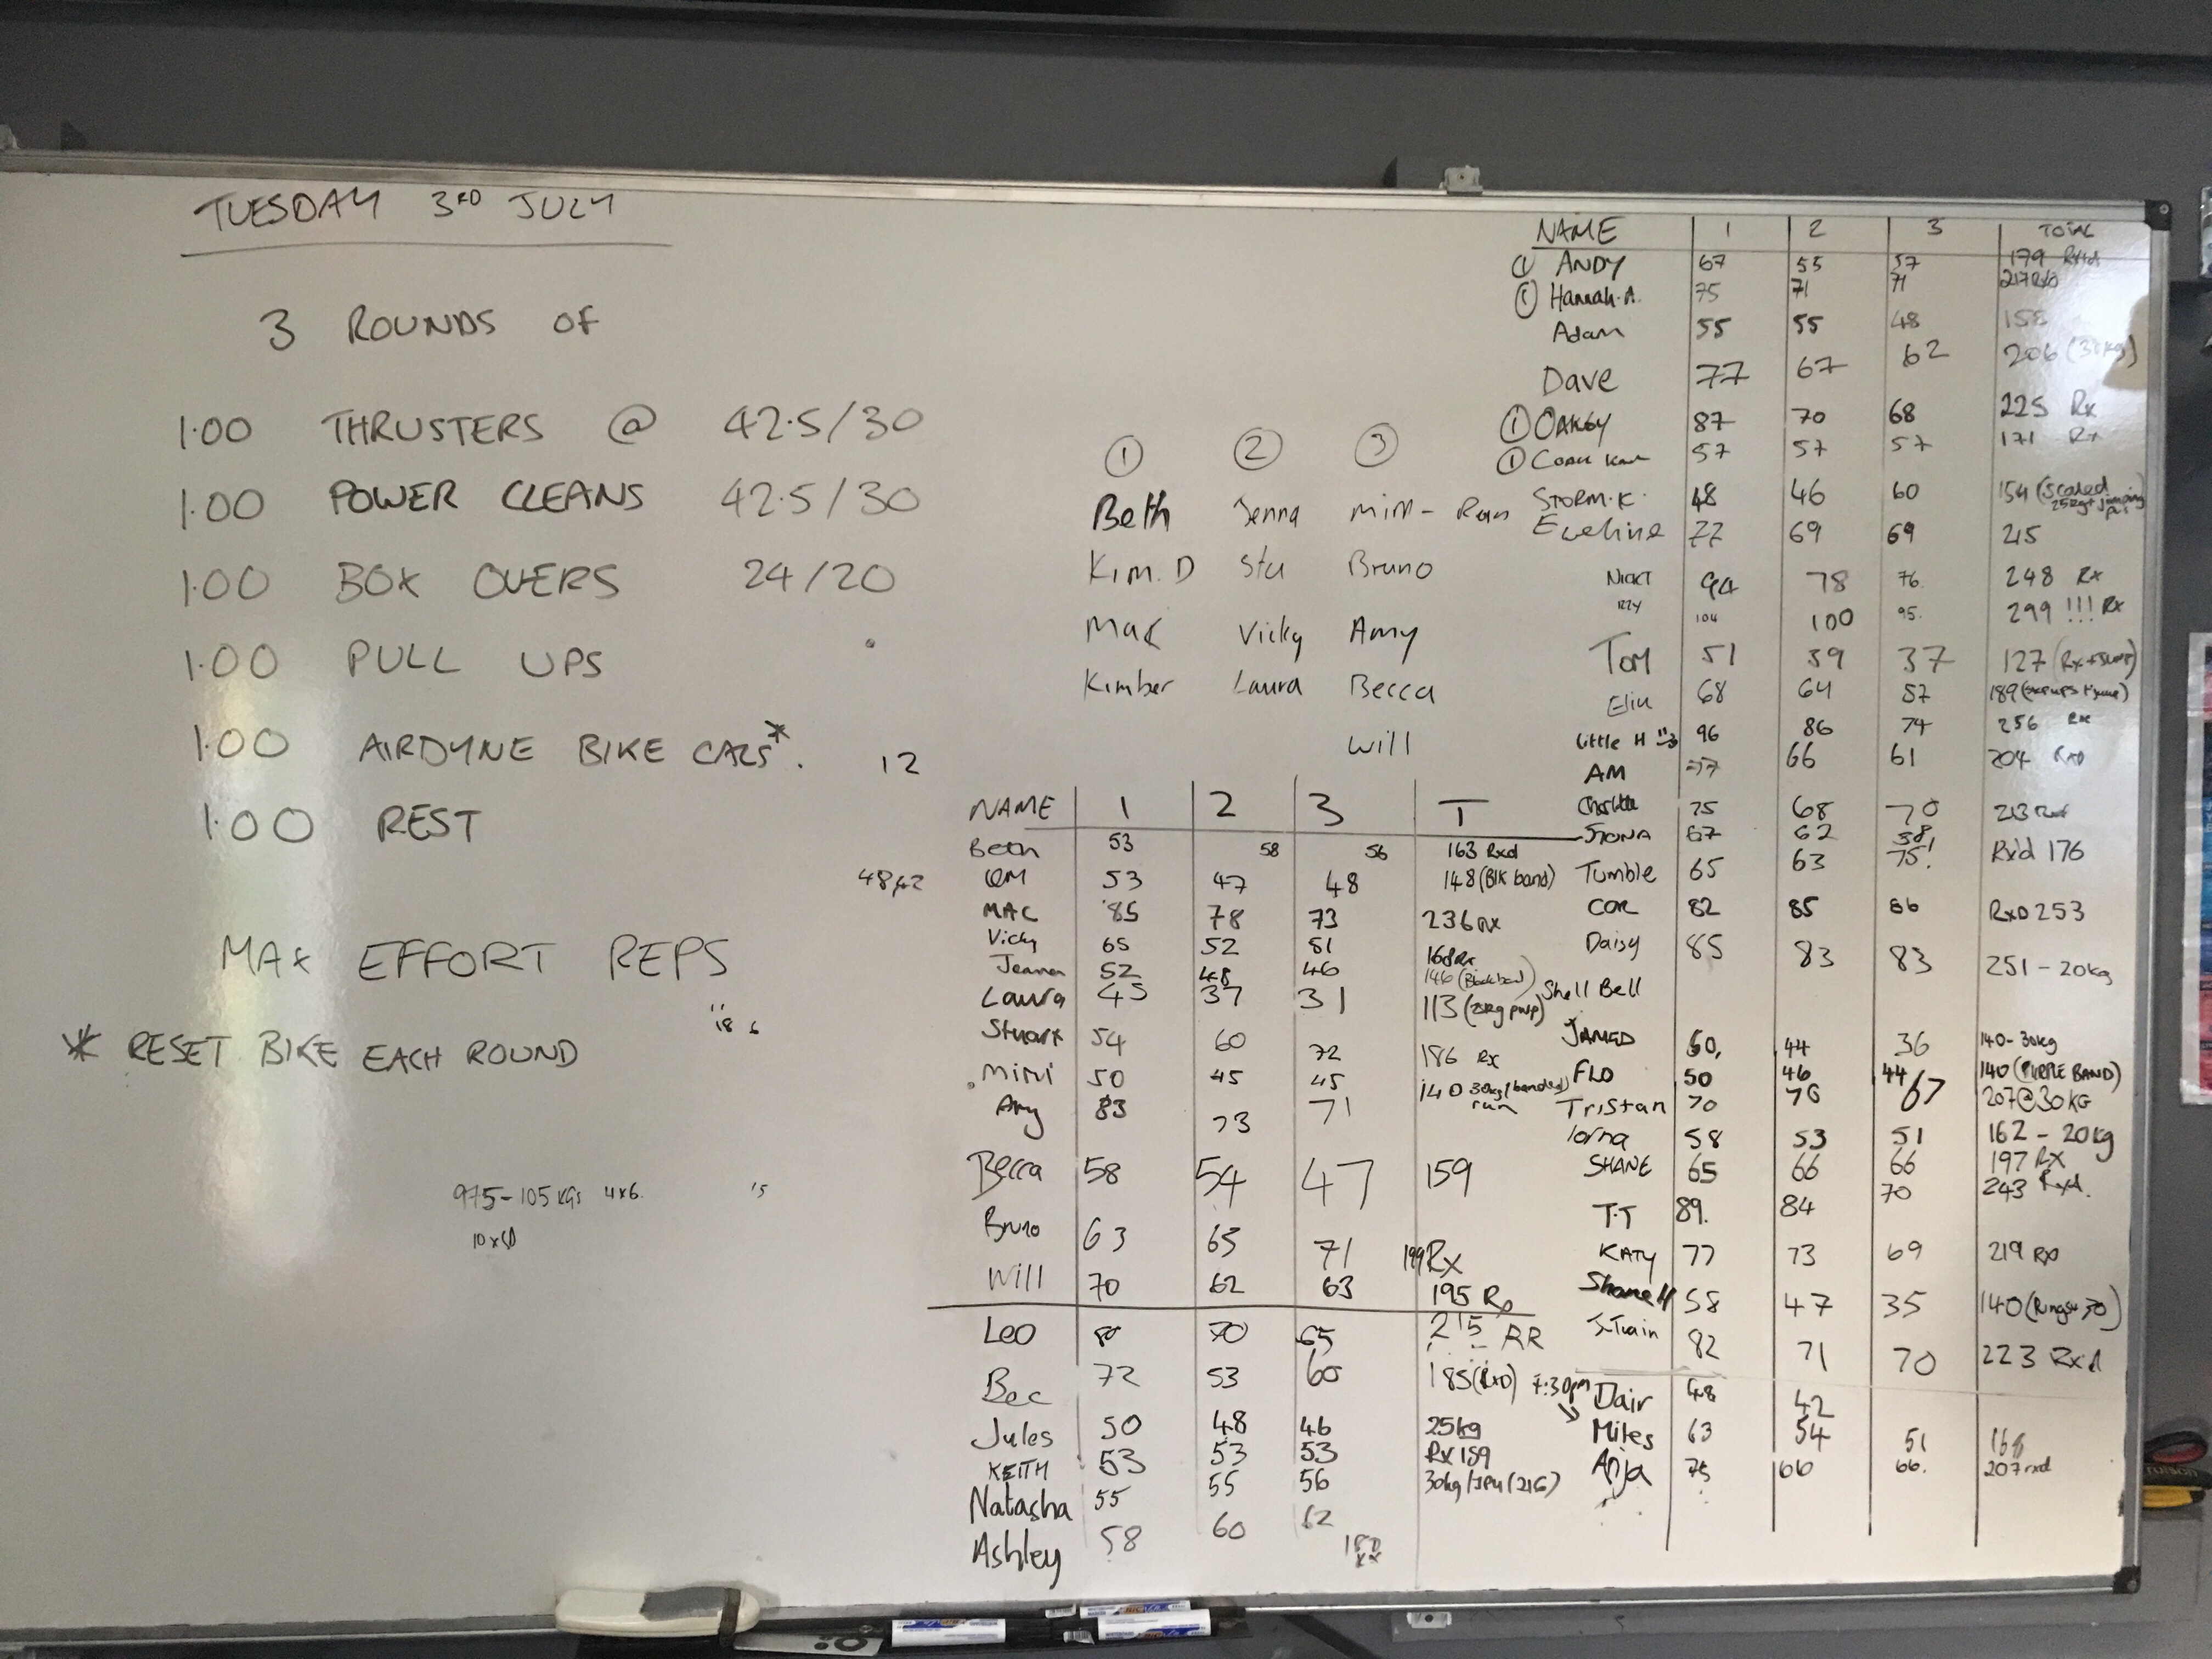 TUESDAY 3RD JULY
3 ROUNDS OF
1.00 THRUSTERS @ 42.5/30
1.00 POWER CLEANS 42.5/30
1.00 BOX OVERS 24/20
1.00 PULL UPS
1.00 AIRDYNE BIKE CALS*.
1.00 REST
MAX EFFORT REPS
* RESET BIKE EACH ROUND
975-105 KGs 4x6.
15
12
① ② ③
Beth Jenna Mim - Ran
Kim.D Stu Bruno
Mac Vicky Amy
Kimber Laura Becca
Will
NAME 1 2 3 T
Beth 53 58 56 163 Rxd
53 47 48 148 (Blk band)
MAC 85 78 73 236 RX
Vicky 65 52 51 168 Rx
Jenna 52 48 46 146 (Black band)
Laura 45 37 31 113
Stuart 54 60 72 186 Rx
Mimi 50 45 45 140 30kg/banded/run
Amy 83 73 71
Becca 58 54 47 159
Bruno 63 65 71 199 Rx
Will 70 62 63 195
Leo 80 70 65 215 RR
Bec 72 53 60 185 (RXD)
Jules 50 48 46 25kg
KEITH 53 53 53 RX 159
Natasha 55 55 56 30kg/JPU (216)
Ashley 58 60 62 180 RX
NAME 1 2 3 TOTAL
① ANDY 67 55 57 179
① Hannah.A. 75 71 71 217 RXD
Adam 55 55 48 158
Dave 77 67 62 206
① OAKEY 87 70 68 225 Rx
① COACH 57 57 57 171 Rx
STORM.K. 48 46 60 154 (Scaled 25kg + jumping
Eveline 77 69 69 215
NICKY 94 78 76. 248 Rx
IZZY 104 100 95. 299 !!! Rx
Tom 51 39 37 127
68 64 57 189
Little H 96 86 74 256 RX
AM 77 66 61 204 RXD
Charlotte 75 68 70 213
FIONA 67 62
Tumble 65 63 75! Rx'd 176
COR 82 85 86 RXD 253
Daisy 85 83 83 251 - 20kg
Shell Bell
60, 44 36 140 - 30kg
FLO 50 46 44 140 (PURPLE BAND)
Tristan 70 70 67 207 @ 30KG
lorna 58 53 51 162 - 20kg
SHANE 65 66 66 197 RX
T.T 89. 84 70 243 Rxd.
KATY 77 73 69 219 RXD
Shane H 58 47 35 140
J-Train 82 71 70 223 Rx'd
7:30pm
Dair 48 42
Miles 63 54 51 168
Anja 75 66 66. 207 rxd